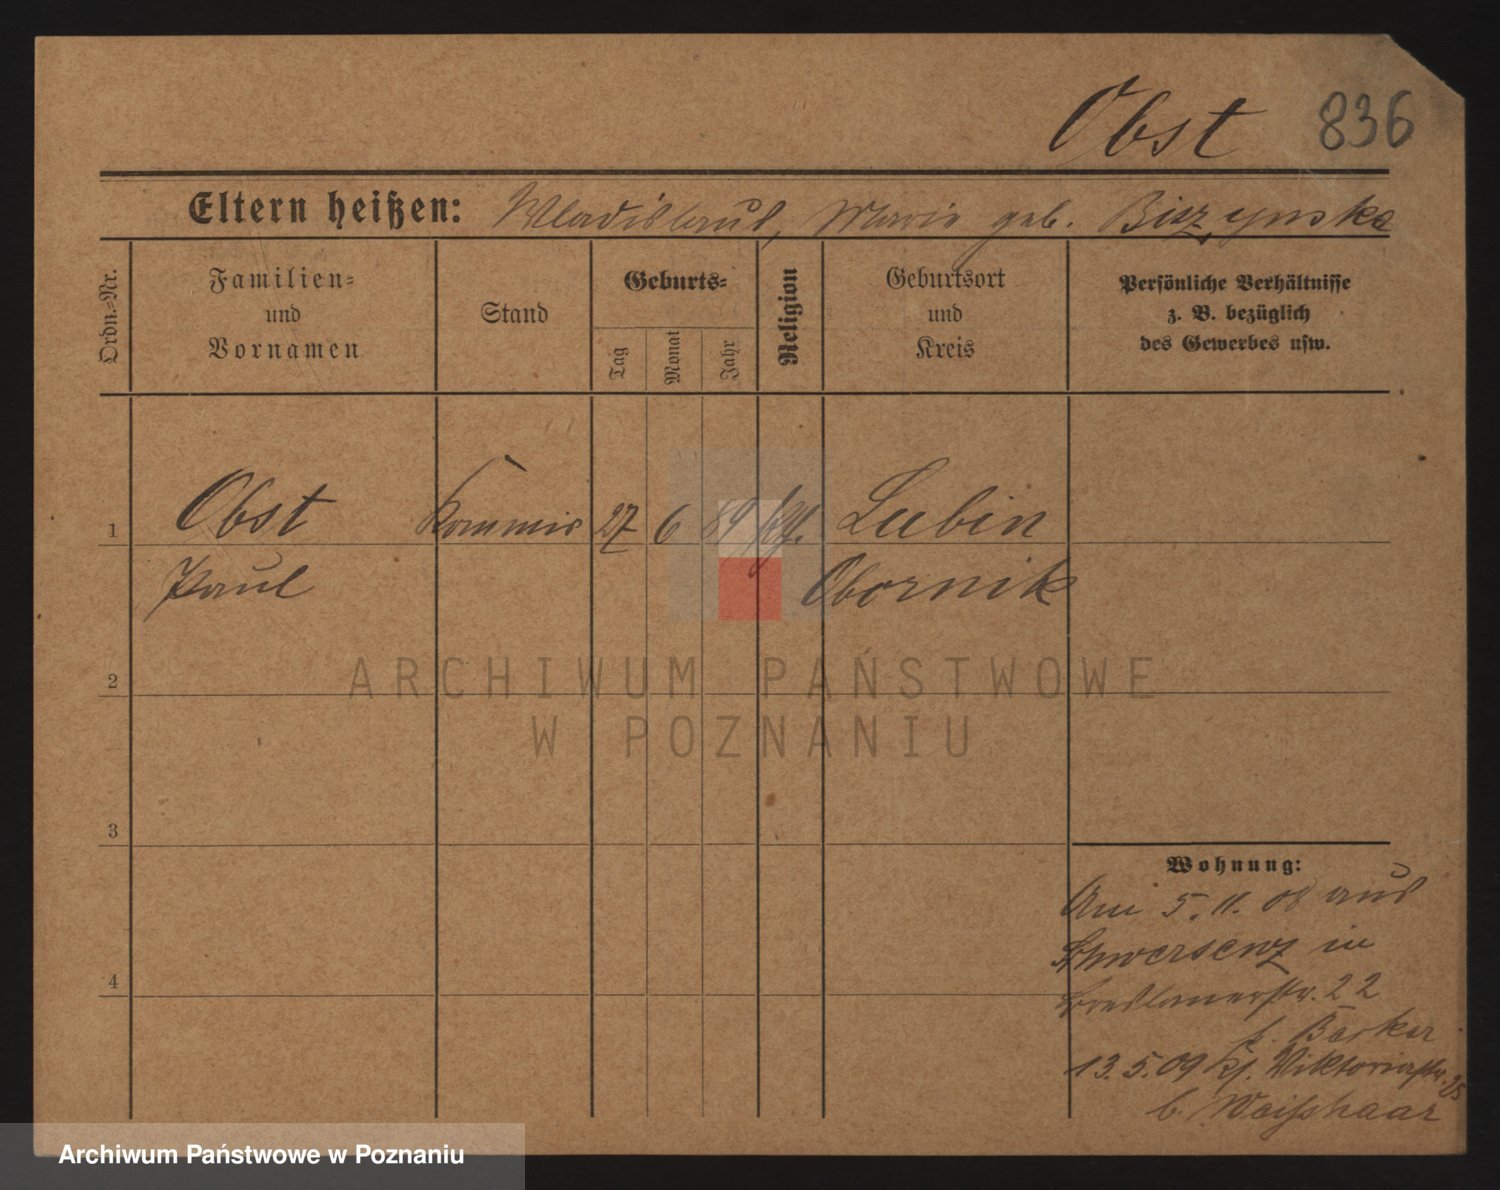 Obst 836
Eltern heißen: Wladislaus, Marie geb. Biszynska
Ordn.-Nr.
Familien-
und
Vornamen
Stand
Geburts-
Tag
Monat
Jahr
Religion
Geburtsort
und
Kreis
Persönliche Verhältnisse
z. B. bezüglich
des Gewerbes usw.
1 Obst Kommis 27 6 89 Lubin
Paul Obornik
2
3
4
Wohnung:
Am 5.11.08 aus
Schwersenz in
Breslauerstr. 22
Bäcker
13.5.09 Viktoriastr. 25
b. Weißhaar
ARCHIWUM PAŃSTWOWE
W POZNANIU
Archiwum Państwowe w Poznaniu